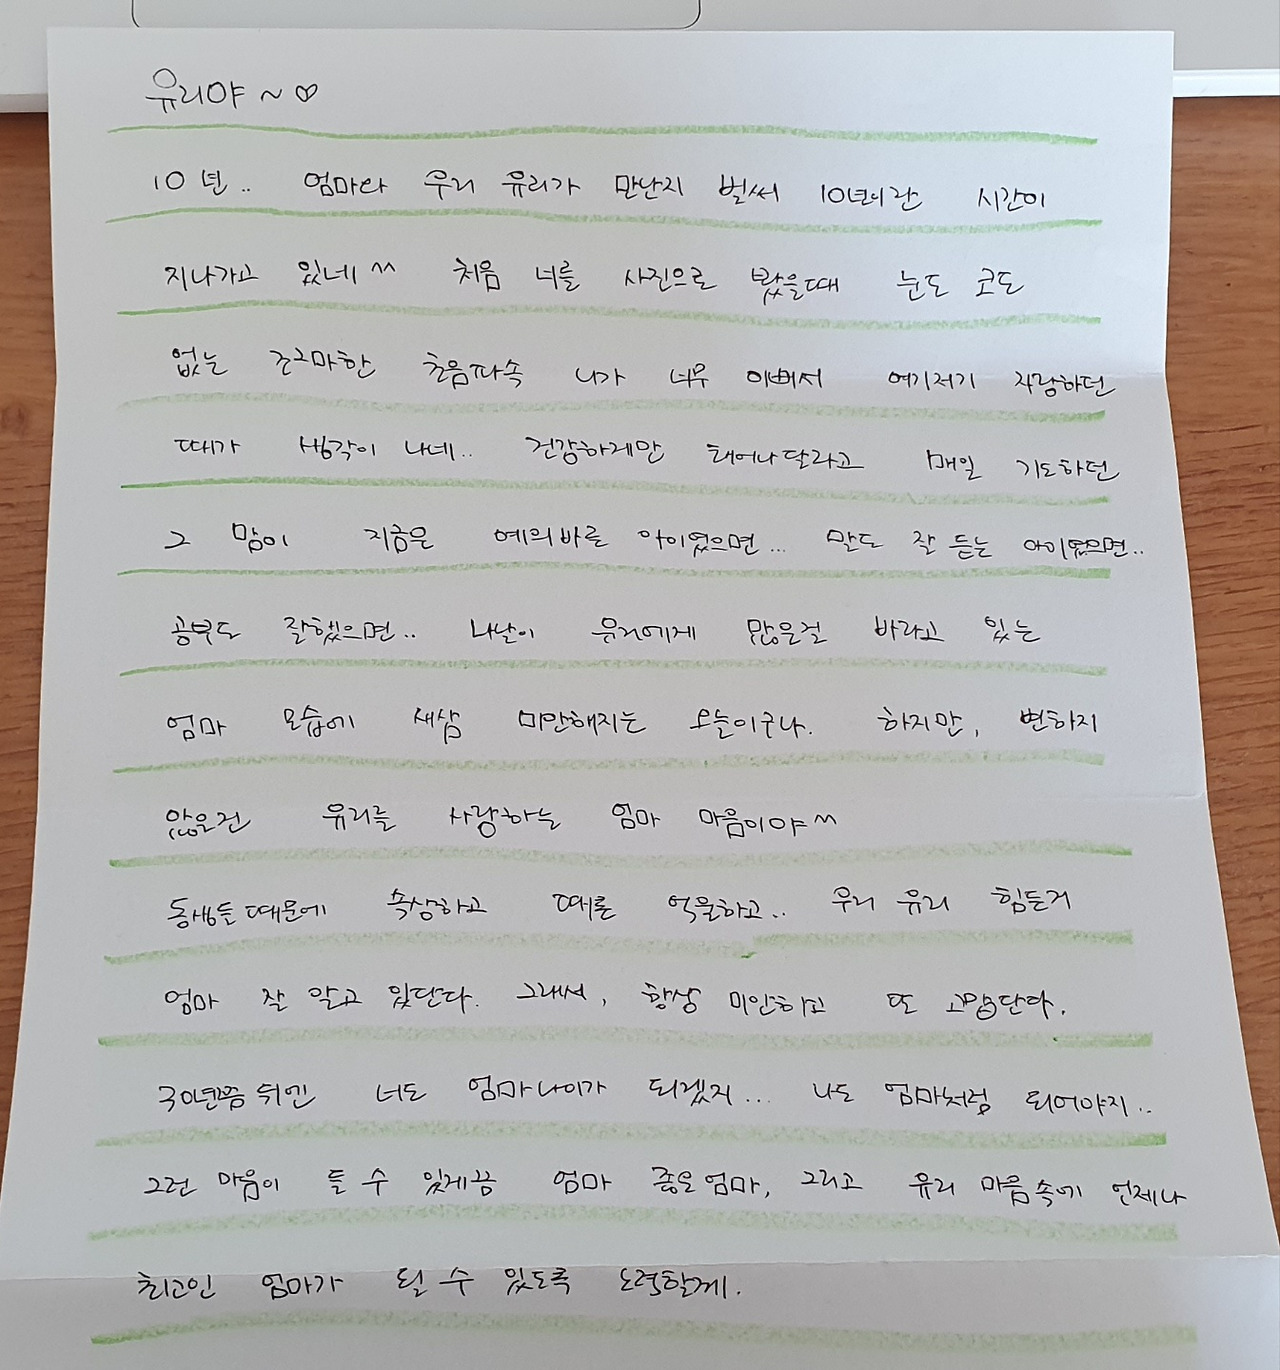 유리야 ~ ♡
10년.. 엄마랑 우리 유리가 만난지 벌써 10년이란 시간이
지나가고 있네^^ 처음 너를 사진으로 봤을때 눈도 코도
없는 조그마한 초음파속 니가 너무 이뻐서 여기저기 자랑하던
때가 생각이 나네.. 건강하게만 태어나달라고 매일 기도하던
그 맘이 지금은 예의바른 아이였으면... 말도 잘 듣는 아이였으면..
공부도 잘했으면.. 나날이 유리에게 많은걸 바라고 있는
엄마 모습에 새삼 미안해지는 오늘이구나. 하지만, 변하지
않은건 유리를 사랑하는 엄마 마음이야^^
동생들때문에 속상하고 때론 억울하고.. 우리 유리 힘든거
엄마 잘 알고 있단다. 그래서, 항상 미안하고 또 고맙단다.
30년쯤 뒤엔 너도 엄마나이가 되겠지... 나도 엄마처럼 되어야지..
그런 마음이 들 수 있게끔 엄마 좋은엄마, 그리고 유리 마음속에 언제나
최고인 엄마가 될 수 있도록 노력할게.